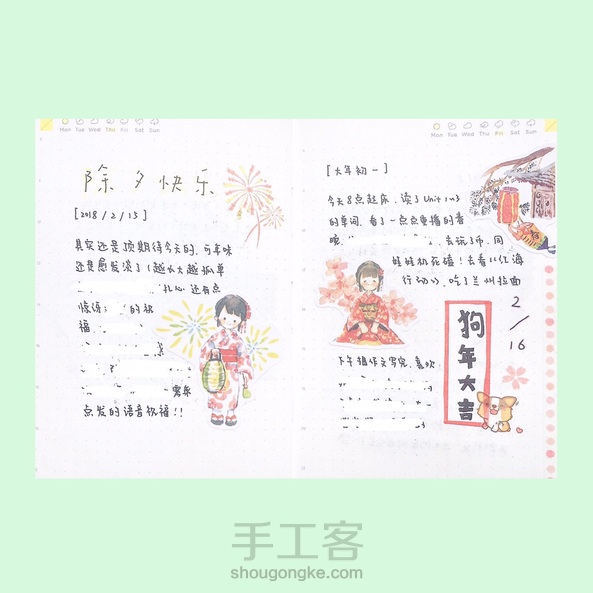 Mon Tue Wed Thu Fri Sat Sun
除夕快乐
[2018/2/15]
其实还是顶期待今天的,可年味
还是愈发淡了(越长大越孤单
扎心 还有点
惊讶: 的祝
福
点发的语音祝福!!
Mon Tue Wed Thu Fri Sat Sun
[大年初一]
今天8点起床,读了Unit 1n3
的单词,看了一点点重播的春
晚, 去玩了币,同
娃娃机死磕!去看《红海
行动》,吃了兰州拉面
2/16
狗年大吉
下午把作文写完,喜欢
手工客
shougongke.com